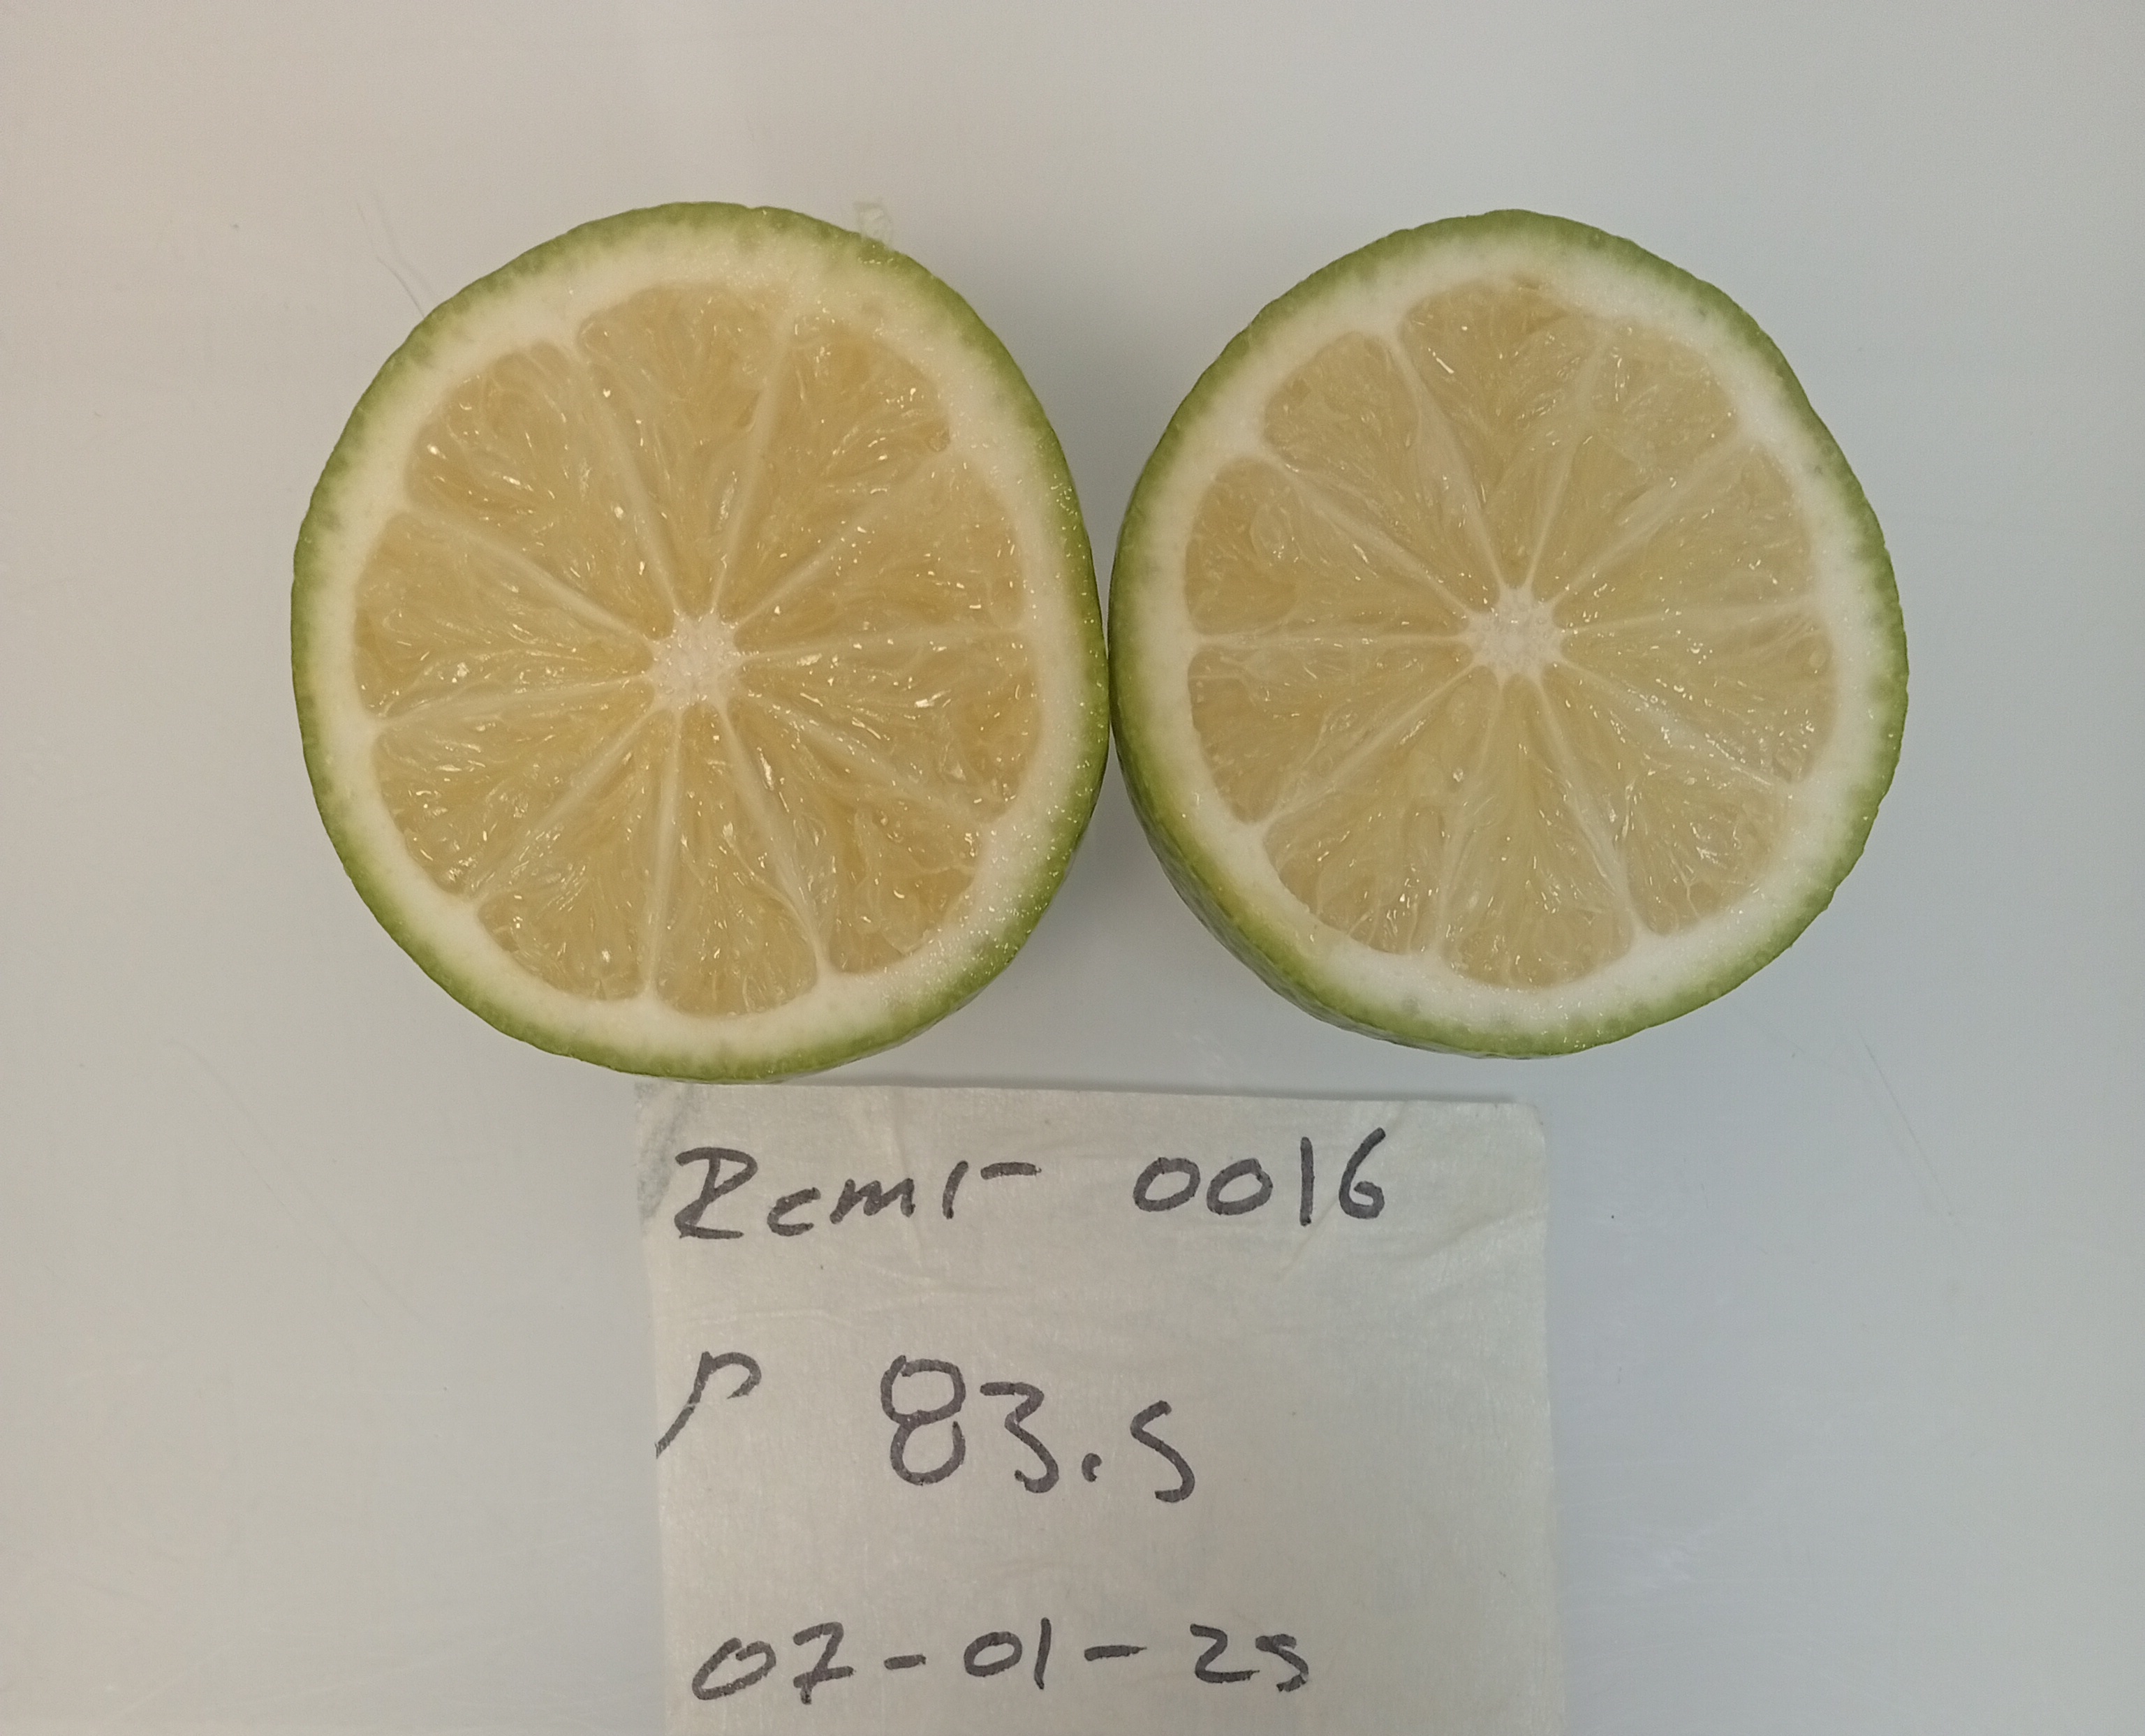 Rcmr- 0016
P 83.5
07-01-25